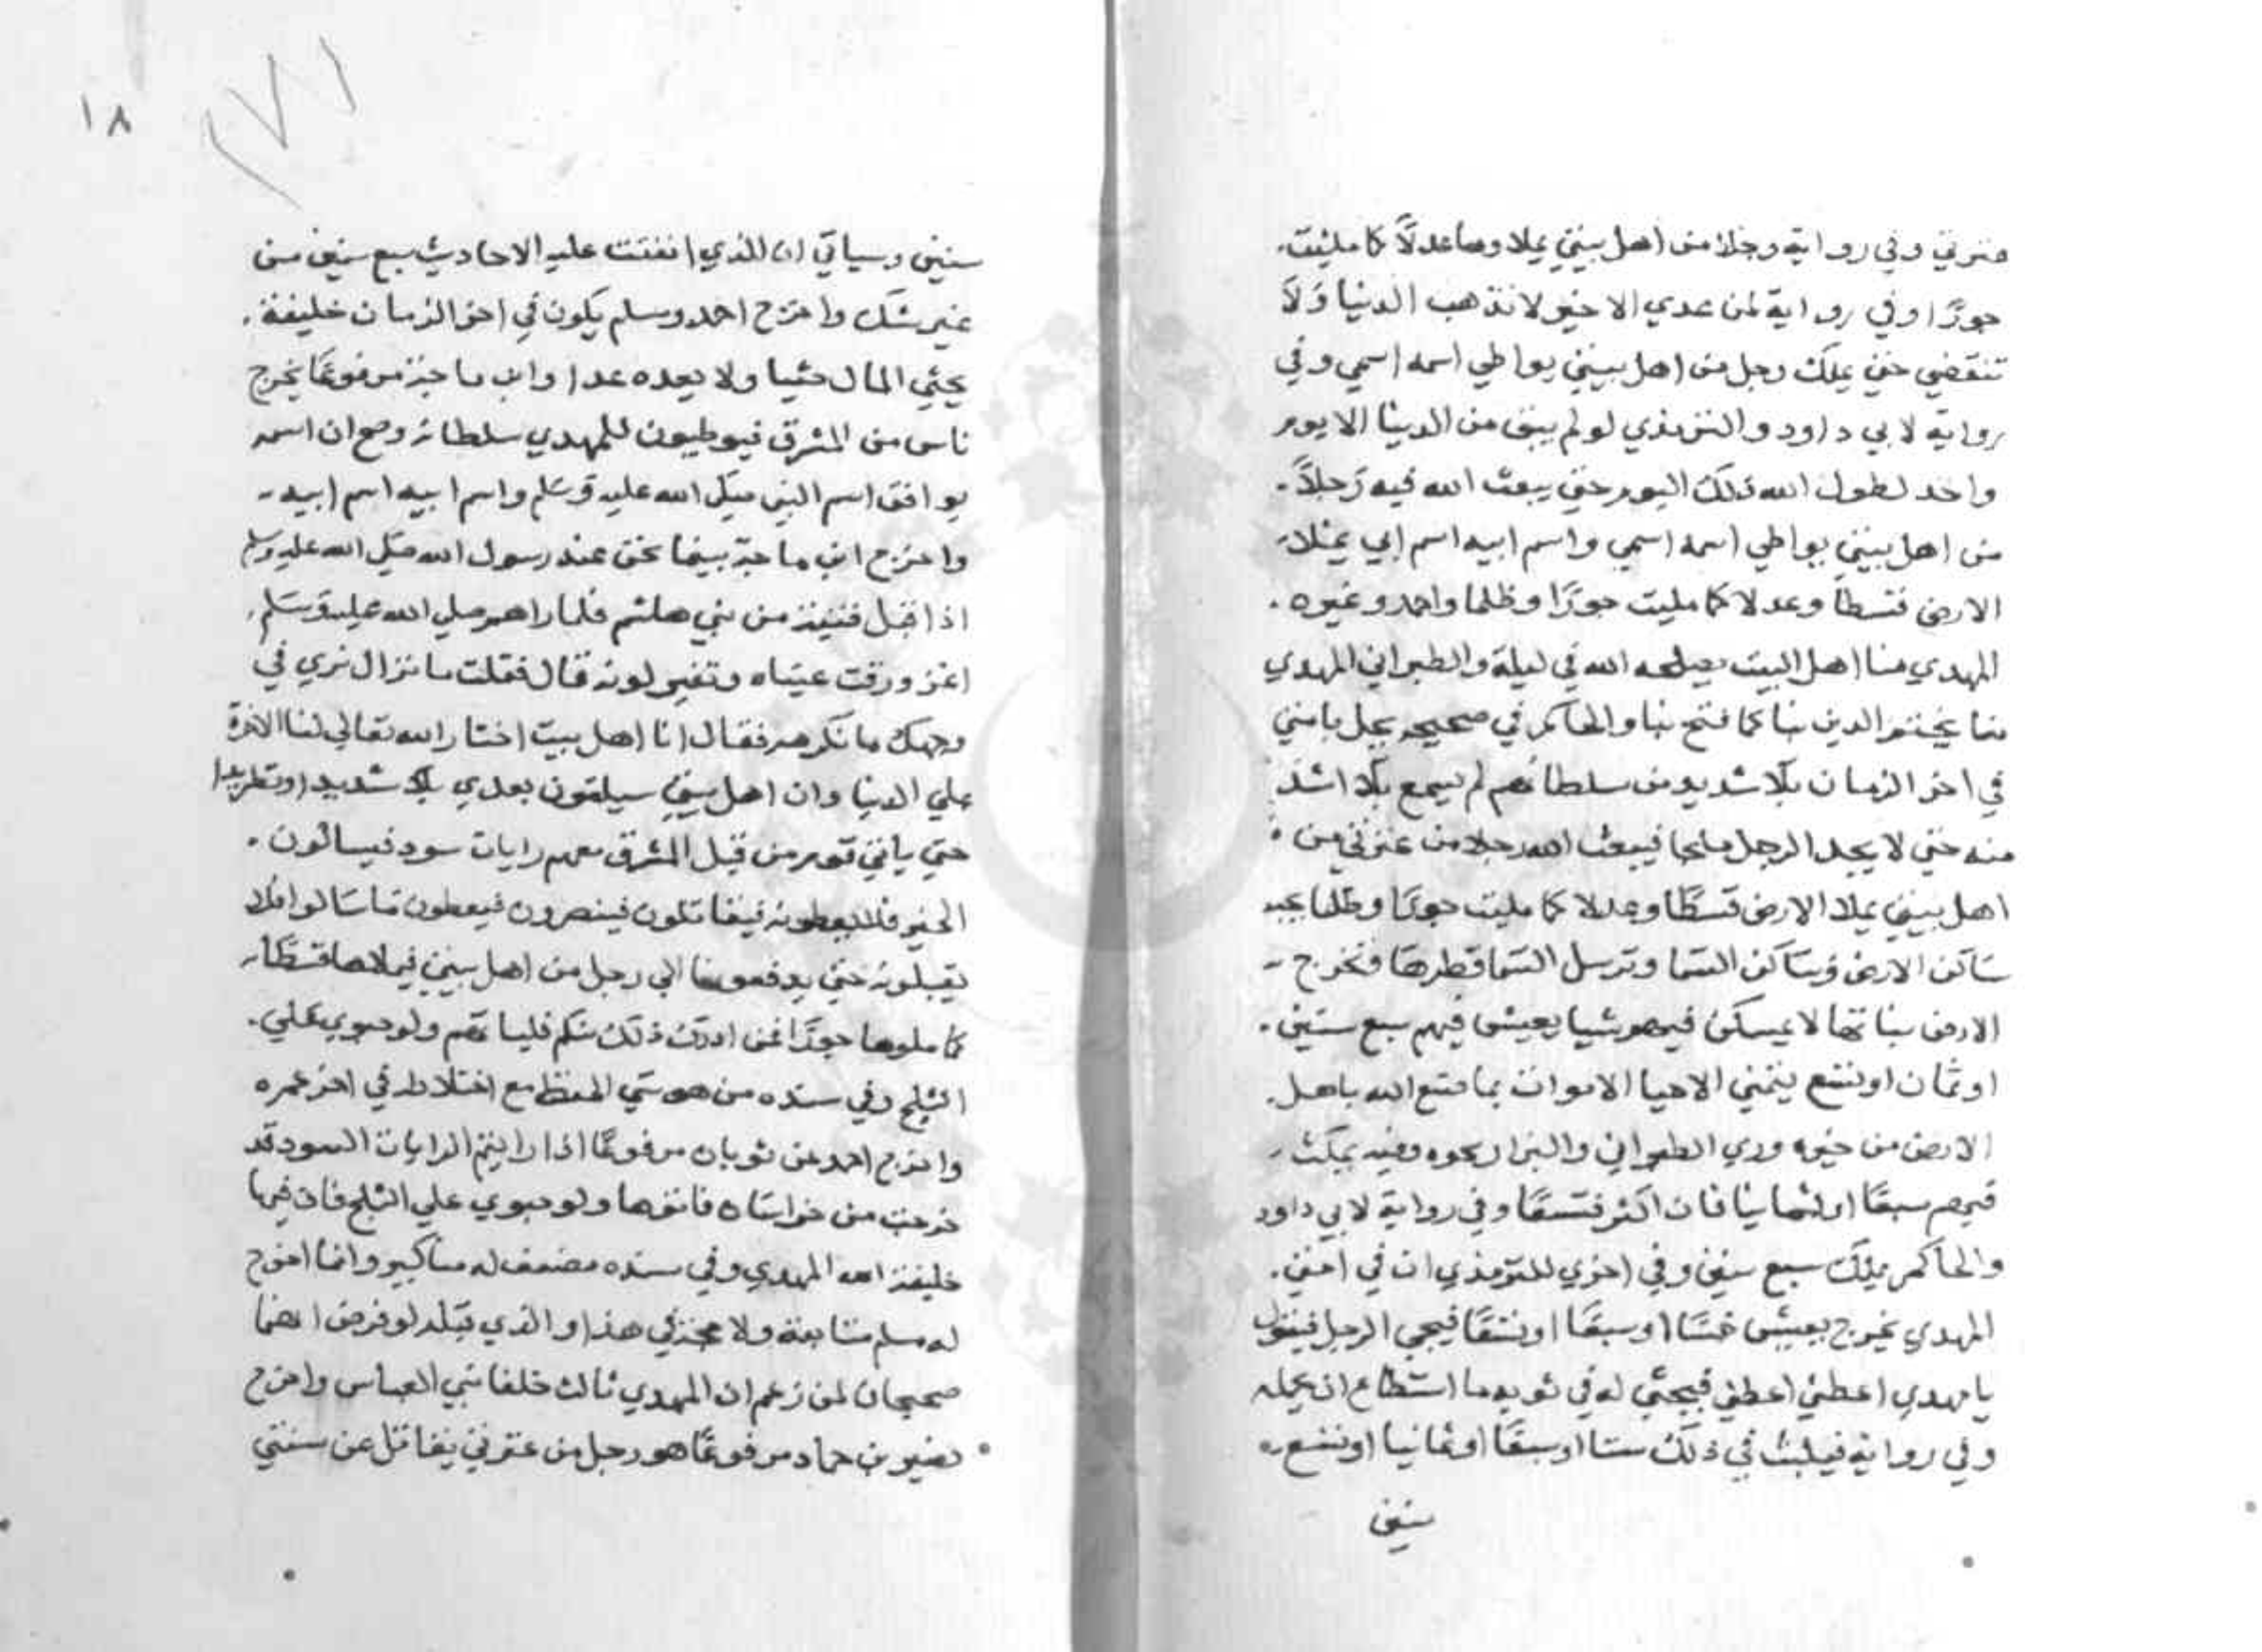 عترتي وفي رواية رجلا من اهل بيتي يملاوها عدلاً كما مليت
جورًا وفي رواية لمن عدي الاخير لا تذهب الدنيا وَلاَ
تنقضي حتي يملك رجل من اهل بيتي يواطي اسمه اسمي وفي
رواية لابي داود والترمذي لو لم يبق من الدنيا الا يوم
واحد لطول الله ذلك اليوم حتي يبعث الله فيه رَجلاً
من اهل بيتي يواطي اسمه اسمي واسم ابيه اسم ابي يملا
الارض قسطا وعدلا كما مليت جورًا وظلما واحمد وغيره
المهدي منا اهل البيت يصلحه الله في ليلة والطبراني المهدي
منا يختم الدين بنا كما فتح بنا والحاكم في صحيحه يحل بامتي
في اخر الزمان بلا شديد من سلطانهم لم يسمع بلا اشد
منه حتي لا يجد الرجل ملجا فيبعث الله رجلا من عترتي من
اهل بيتي يملا الارض قسطًا وعدلا كما مليت جورًا وظلما يحبه
ساكن الارض وساكن السما وترسل السما قطرها وتخرج
الارض بناتها لا يمسكن فيهم شيا يعيش فيهم سبع سنين
او ثمان او تسع يتمني الاحيا الاموات بما صنع الله باهل
الارض من خيره وروي الطبراني والبزار نحوه وفيه يمكث
فيهم سبعًا او ثمانيا فان اكثر فتسعًا وفي رواية لابي داود
والحاكم يملك سبع سنين وفي اخري للترمذي ان في امتي
المهدي يخرج يعيش خمسًا او سبعًا او تسعًا فيجي الرجل فيقول
يا مهدي اعطني اعطني فيحثي له في ثوبه ما استطاع ان يحمله
وفي رواية فيلبث في ذلك ستا او سبعًا او ثمانيا او تسع
سنين
١٨
١٧١
سنين وسياتي ان الذي اتفقت عليه الاحاديث سبع سنين من
غير شك واخرج احمد ومسلم يكون في اخر الزمان خليفة
يحثي المال حثيا ولا يعده عدا وابن ماجة مرفوعًا يخرج
ناس من المشرق فيوطيون للمهدي سلطانه وصح ان اسمه
يوافق اسم النبي صلي الله عليه وسلم واسم ابيه اسم ابيه
واخرج ابن ماجة بينما نحن عند رسول الله صلي الله عليه وسلم
اذ اقبل فتية من بني هاشم فلما راهم صلي الله عليه وسلم
اغرورقت عيناه وتغير لونه قال فقلت ما نزال نري في
وجهك ما نكرهه فقال انا اهل بيت اختار الله تعالي لنا الاخرة
علي الدنيا وان اهل بيتي سيلقون بعدي بلا شديدا وتطريدا
حتي ياتي قوم من قبل المشرق معهم رايات سود فيسالون
الخير فلا يعطونه فيقاتلون فينصرون فيعطون ما سالوا فلا
يقبلونه حتي يدفعوها الي رجل من اهل بيتي فيملاها قسطًا
كما ملوها جورًا فمن ادرك ذلك منكم فلياتهم ولو حبوي علي
الثلج وفي سنده من هو سيي الحفظ مع اختلاطه في اخر عمره
واخرج احمد عن ثوبان مرفوعًا اذا رايتم الرايات السود قد
خرجت من خراسان فاتوها ولو حبوي علي الثلج فان فيها
خليفة الله المهدي وفي سنده مضعف له مناكير وانما اخرج
له مسلم متابعة ولا حجة في هذا والذي قبله لو فرض انهما
صحيحان لمن زعم ان المهدي ثالث خلفا بني العباس واخرج
نصير بن حماد مرفوعًا هو رجل من عترتي يقاتل عن سنتي